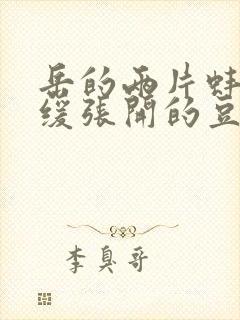 岳的两片蚌
缓张開的豆
李臭哥